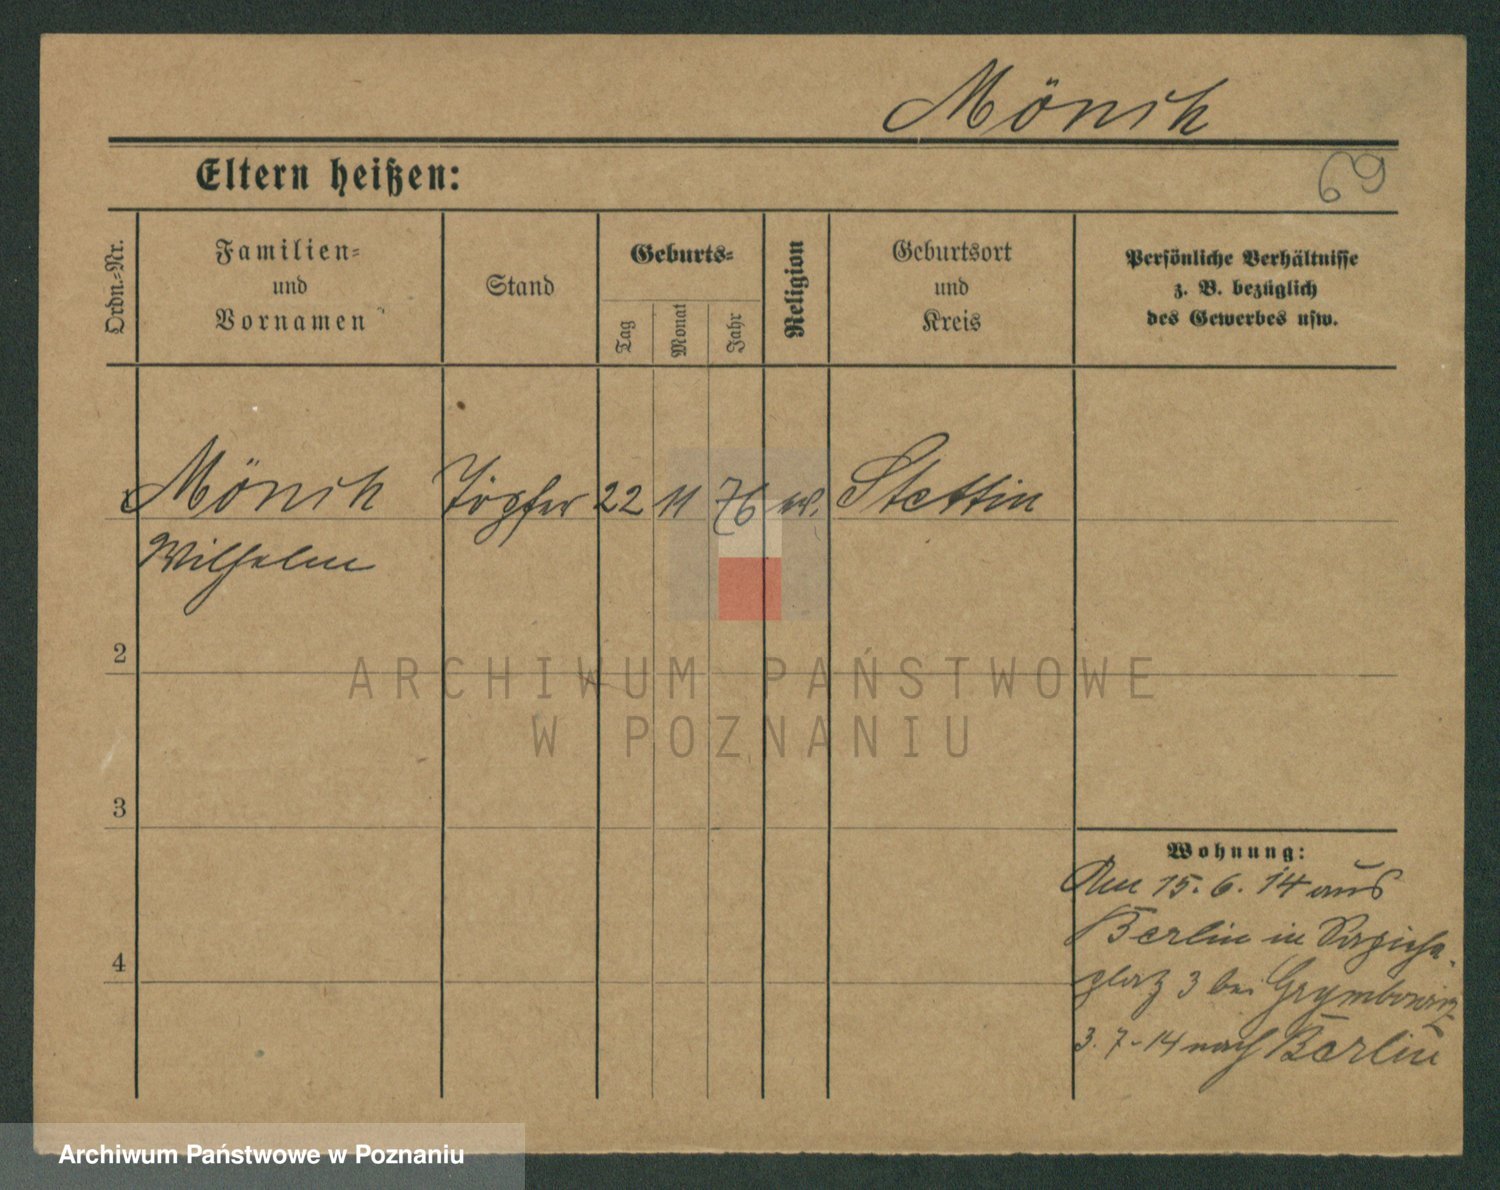 Mönik
Eltern heißen:
69
Ordn.-Nr.
Familien-
und
Vornamen
Stand
Geburts-
Tag
Monat
Jahr
Religion
Geburtsort
und
Kreis
Persönliche Verhältnisse
z. B. bezüglich
des Gewerbes usw.
Mönik Töpfer 22 11 76 ev. Stettin
Wilhelm
2
3
4
Wohnung:
Am 15. 6. 14 aus
Berlin in Sapieha-
platz 3 bei
3. 7. 14 nach Berlin
ARCHIWUM PAŃSTWOWE
W POZNANIU
Archiwum Państwowe w Poznaniu